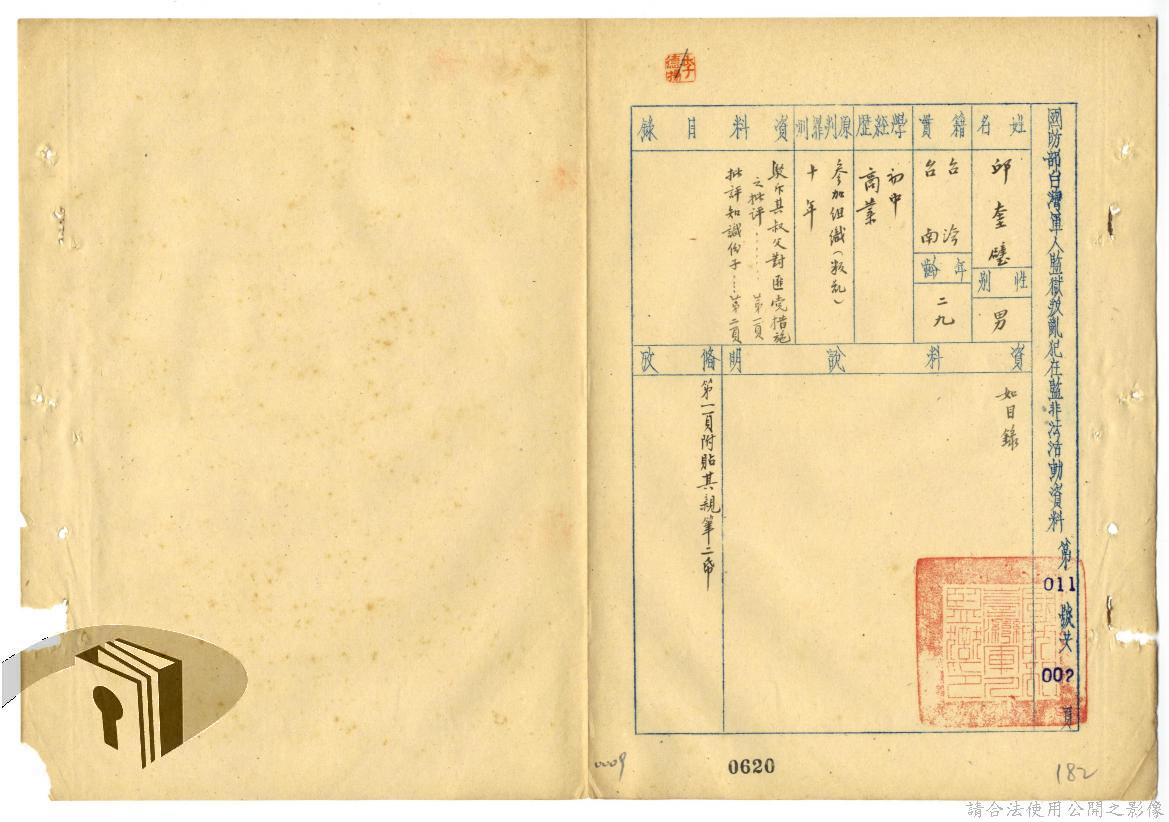 國防部台灣軍人監獄叛亂犯在監非法活動資料 第 011 號共 002 頁
姓名
邱奎璧
性別
男
籍貫
台灣
台南
年齡
二九
學經歷
初中
商業
原判罪刑
參加組織(叛乱)
十年
資料目錄
駁斥其叔父對匪党措施
之批评……第一頁
批評知識份子……第二頁
資料說明
如目錄
備攷
第一頁附貼其親筆二帋
0009
0620
182
請合法使用公開之影像